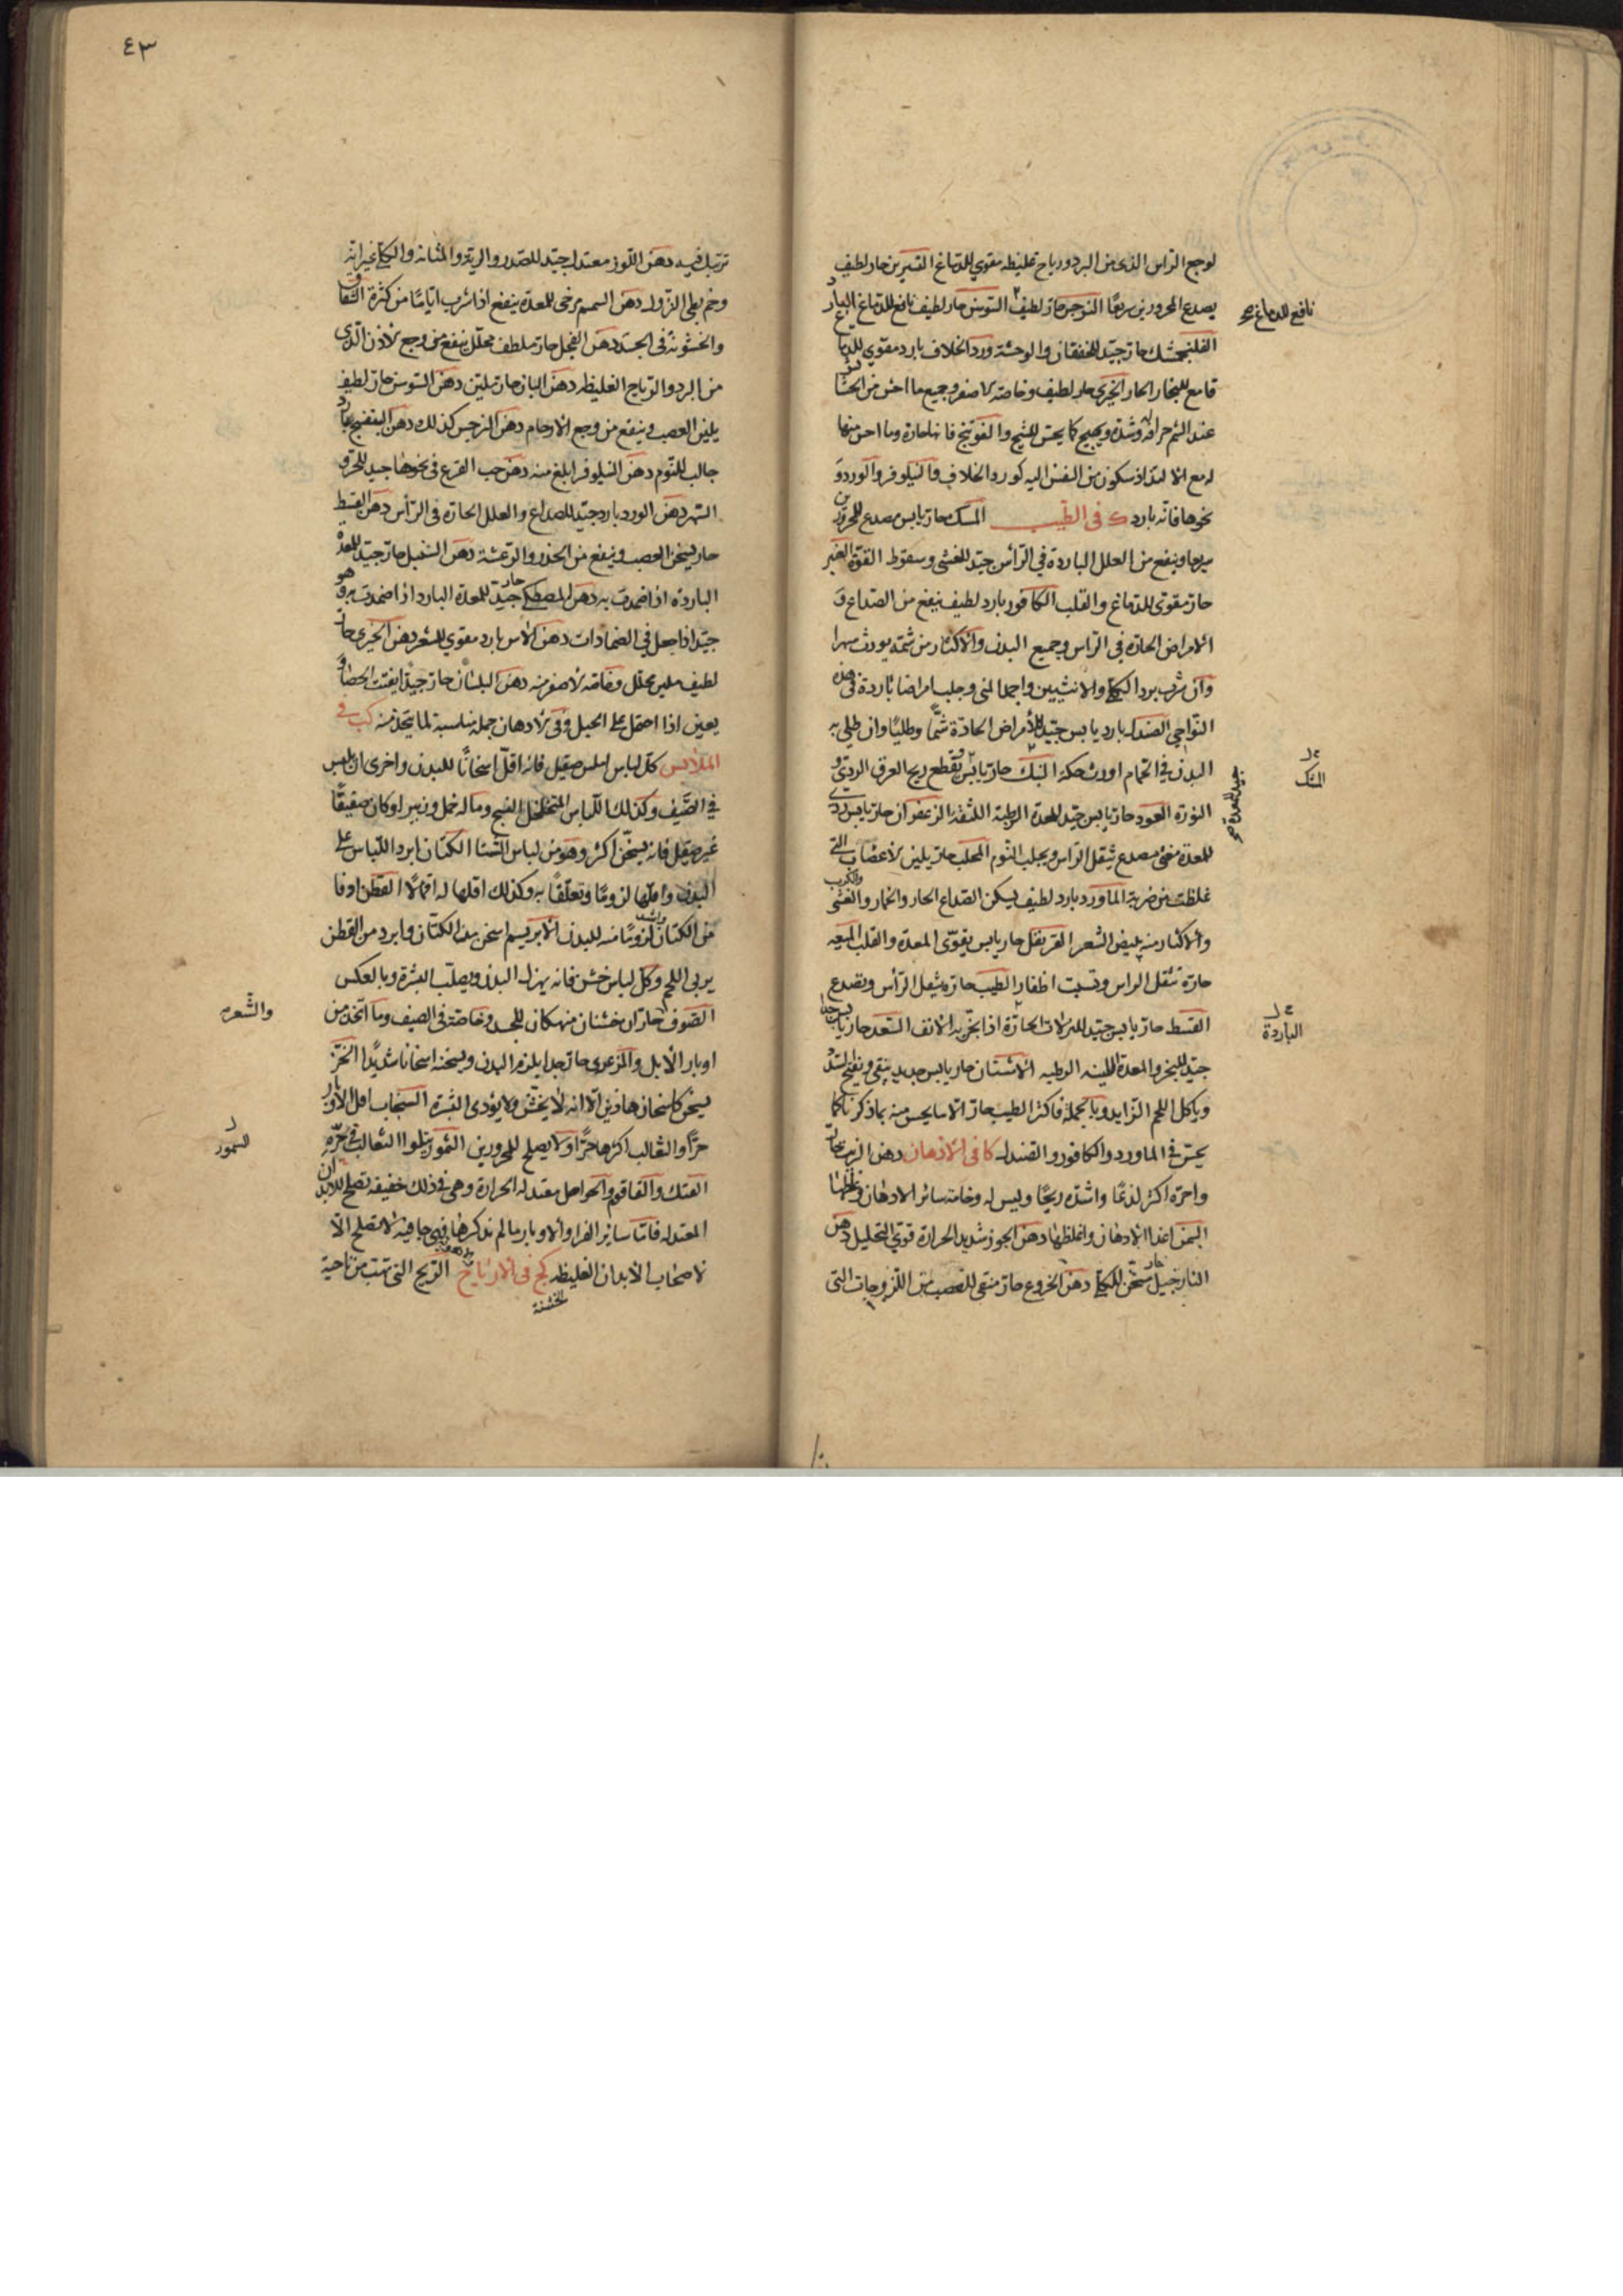 لوجع الراس الذى من البرد ورياح غليظه مقوي للدماغ النسرين حار لطيف
يصدع المحرورين سريعًا النرجس حار لطيف السوسن حار لطيف نافع للدماغ البارد
نافع للدماغ صح
الفلنجمشك حار جيّد للخفقان والوحشة ورد الخلاف بارد مقوي للدماغ
قامع للبخار الحار الخيري حار لطيف وخاصته الاصفر وجميع ما احس من
عند الشم حرافة وشدة ويهيج كما يحس للشيح والفوتنج فانها حارة وما احس منها
له مع الالتذاذ سكون من النفس اليه كورد الخلاف والنيلوفر والورد و
نحوها فانّه بارد ك في الطّيب المسك حار يابس مصدع للمحرورين
سريعا وينفع من العلل الباردة في الرأس جيّد للغشى وسقوط القوة العنبر
حار مقوى للدماغ والقلب الكافور بارد لطيف ينفع من الصّداع و
الامراض الحارة في الراس وجميع البدن والاكثار من شمّه يورث سهرا
وان شرب برد الكلى والانثيين واجمد المنى وجلب امراضا باردة في هذه
النّواحي الصندل بارد يابس جيّد للأمراض الحادّة شمًّا وطليًا وان طلي به
البدن في الحمام اورث حكة السّك حار يابس يقطع ريح العرق الردي و
السّك
النورة العود حار يابس جيّد للمعدة الرطبة اللثقة الزعفران حار يابس ردي
جيد للمعدة صح
للمعدة مغثى مصدع يثقل الراس ويجلب النوم المحلب حار يلين الاعضاء التى
غلظت من ضربة الماورد بارد لطيف يسكن الصّداع الحار والخمار والغشى
والكرب
والاكثار منه يبيض الشعر القرنفل حار يابس يقوّى المعدة والقلب الميعه
حارة تثقل الراس وتسبت اظفار الطيب حارة يثقل الرأس وتصدع
القسط حار يابس جيّد للنزلات الحارة اذا بخّر به الانف السّعد حار يابس جدا
الباردة
جيّد للبخر والمعدة اللينه الرطبه الاشنان حار يابس جديد ينقى ويفتح السدد
وياكل اللحم الزايد وبالجمله فاكثر الطيب حار الا ما يحس منه بما ذكرنا كما
يحسّ في الماورد والكافور والصندل كا في الادهان دهن الزيت حار
واحرّه اكثره لذعًا واشدّه ريحًا وليس له وخامة سائر الادهان وغلظها
السّمن اغذا الادهان واغلظها دهن الجوز شديد الحرارة قوي التحليل دهن
النارجيل حار مسخّن للكلى دهن الخروع حار منقى للعصب من اللزوجات التى
٤٣
ترتبك فيه دهن اللّوز معتدل جيّد للصّدر والرية والمثانه والكلى غير انه
وخم بطى النّزول دهن السمسم مرخى للمعدة ينفع اذا شرب ايّامًا من كثرة الشقاق
والخشونة في الجسد دهن الفجل حار ملطف محلّل ينفع من وجع الاذن الذى
من البرد والرياح الغليظه دهن البان حار ملين دهن السّوسن حار لطيف
يلين العصب وينفع من وجع الارحام دهن النرجس كذلك دهن البنفسج بارد
جالب للنّوم دهن النيلوفر ابلغ منه دهن حب القرع في نحوها جيد للحرّ و
السّهر دهن الورد بارد جيّد للصداع والعلل الحارة في الرّأس دهن القسط
حار يسخن العصب وينفع من الخدر والرّعشة دهن السّنبل حار جيّد للمعدة
الباردة اذا ضمدت به دهن المصطكى حار جيّد للمعدة البارد اذا ضمدت به وهو
جيّد اذا جعل في الضمادات دهن الآس بارد مقوي للشعر دهن الخيري حار
لطيف ملين محلّل وخاصّه الاصفر منه دهن البلسان حار جيّدا يفتت الحصاة و
يعين اذا احتمل على الحبل وقوى الادهان جملة مناسبة لما يتّخذ منه كب في
الملابس كلّ لباس املس صقيل فانه اقلّ اسخانًا للبدن واحرى ان يلبس
في الصّيف وكذلك اللّباس المتخلخل النسج وما له خمل وزيبر او كان صفيقًا
غير صقيل فانه يسخّن اكثر وهو من لباس الشّتا الكتّان ابرد اللّباس على
البدن واقلّها لزومًا وتعلّقًا به وكذلك اقلها له اقمالًا القطن ادفا
من الكتان واشد لزومًا منه للبدن الابريسم اسخن من الكتّان وابرد من القطن
يربى اللحم وكلّ لباس خشن فانه يهزل البدن ويصلّب البشرة وبالعكس
الصّوف حارّان خشنان منهكان للجسد وخاصّة في الصيف وما اتّخذ من
والشّعر
اوبار الابل والمرعزى حار جدا يلزم البدن ويسخنه اسخانا شديدًا الخزّ
يسخن كاسخان هاذين الّا انه لا يخشّن ولا يؤذى البشرة السّنجاب اقل الاوبار
حرًّا والثعالب اكثرها حرًّا ولا يصلح للمحرورين السّمور يتلوا الثعالب في حرّه
السمور
الفنك والقاقم والحواصل معتدله الحرارة وهى في ذلك خفيفه تصلح للابدان
المعتدله فامّا سائر الفرا والاوبار ما لم نذكرها فهى جافيه لا تصلح الّا
لاصحاب الابدان الغليظه كج في الارياح الريح التى تهب من ناحية
الخشنة